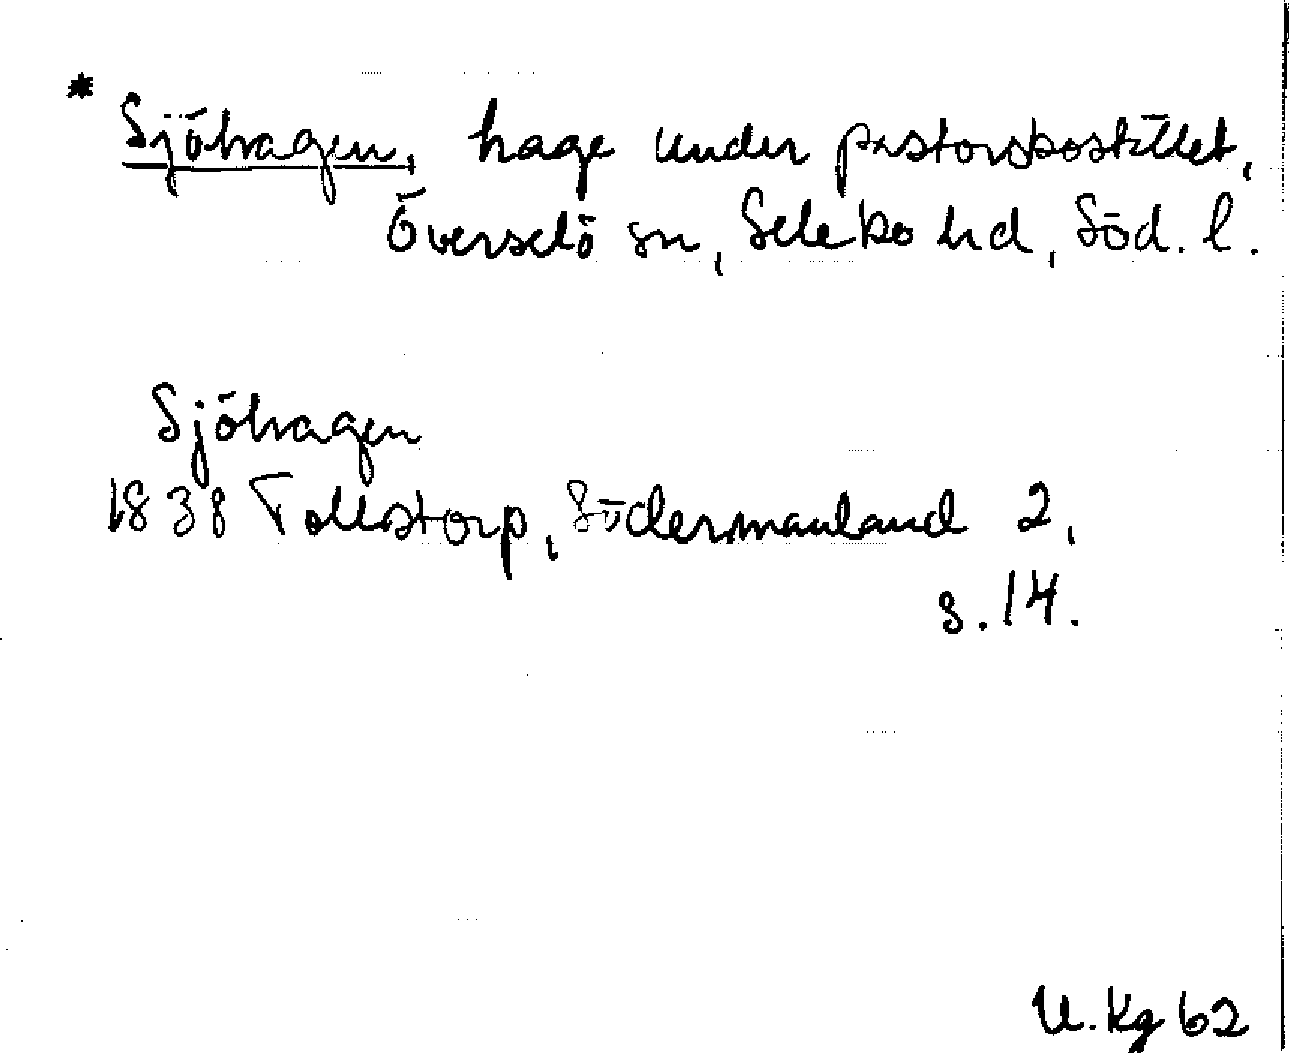 * Sjöhagen, hage under pastorsbostället,
Överselö sn, Selebo hd, Söd. l.
Sjöhagen
1838 Tollstorp, Södermanland 2,
s. 14.
U. Kg 62